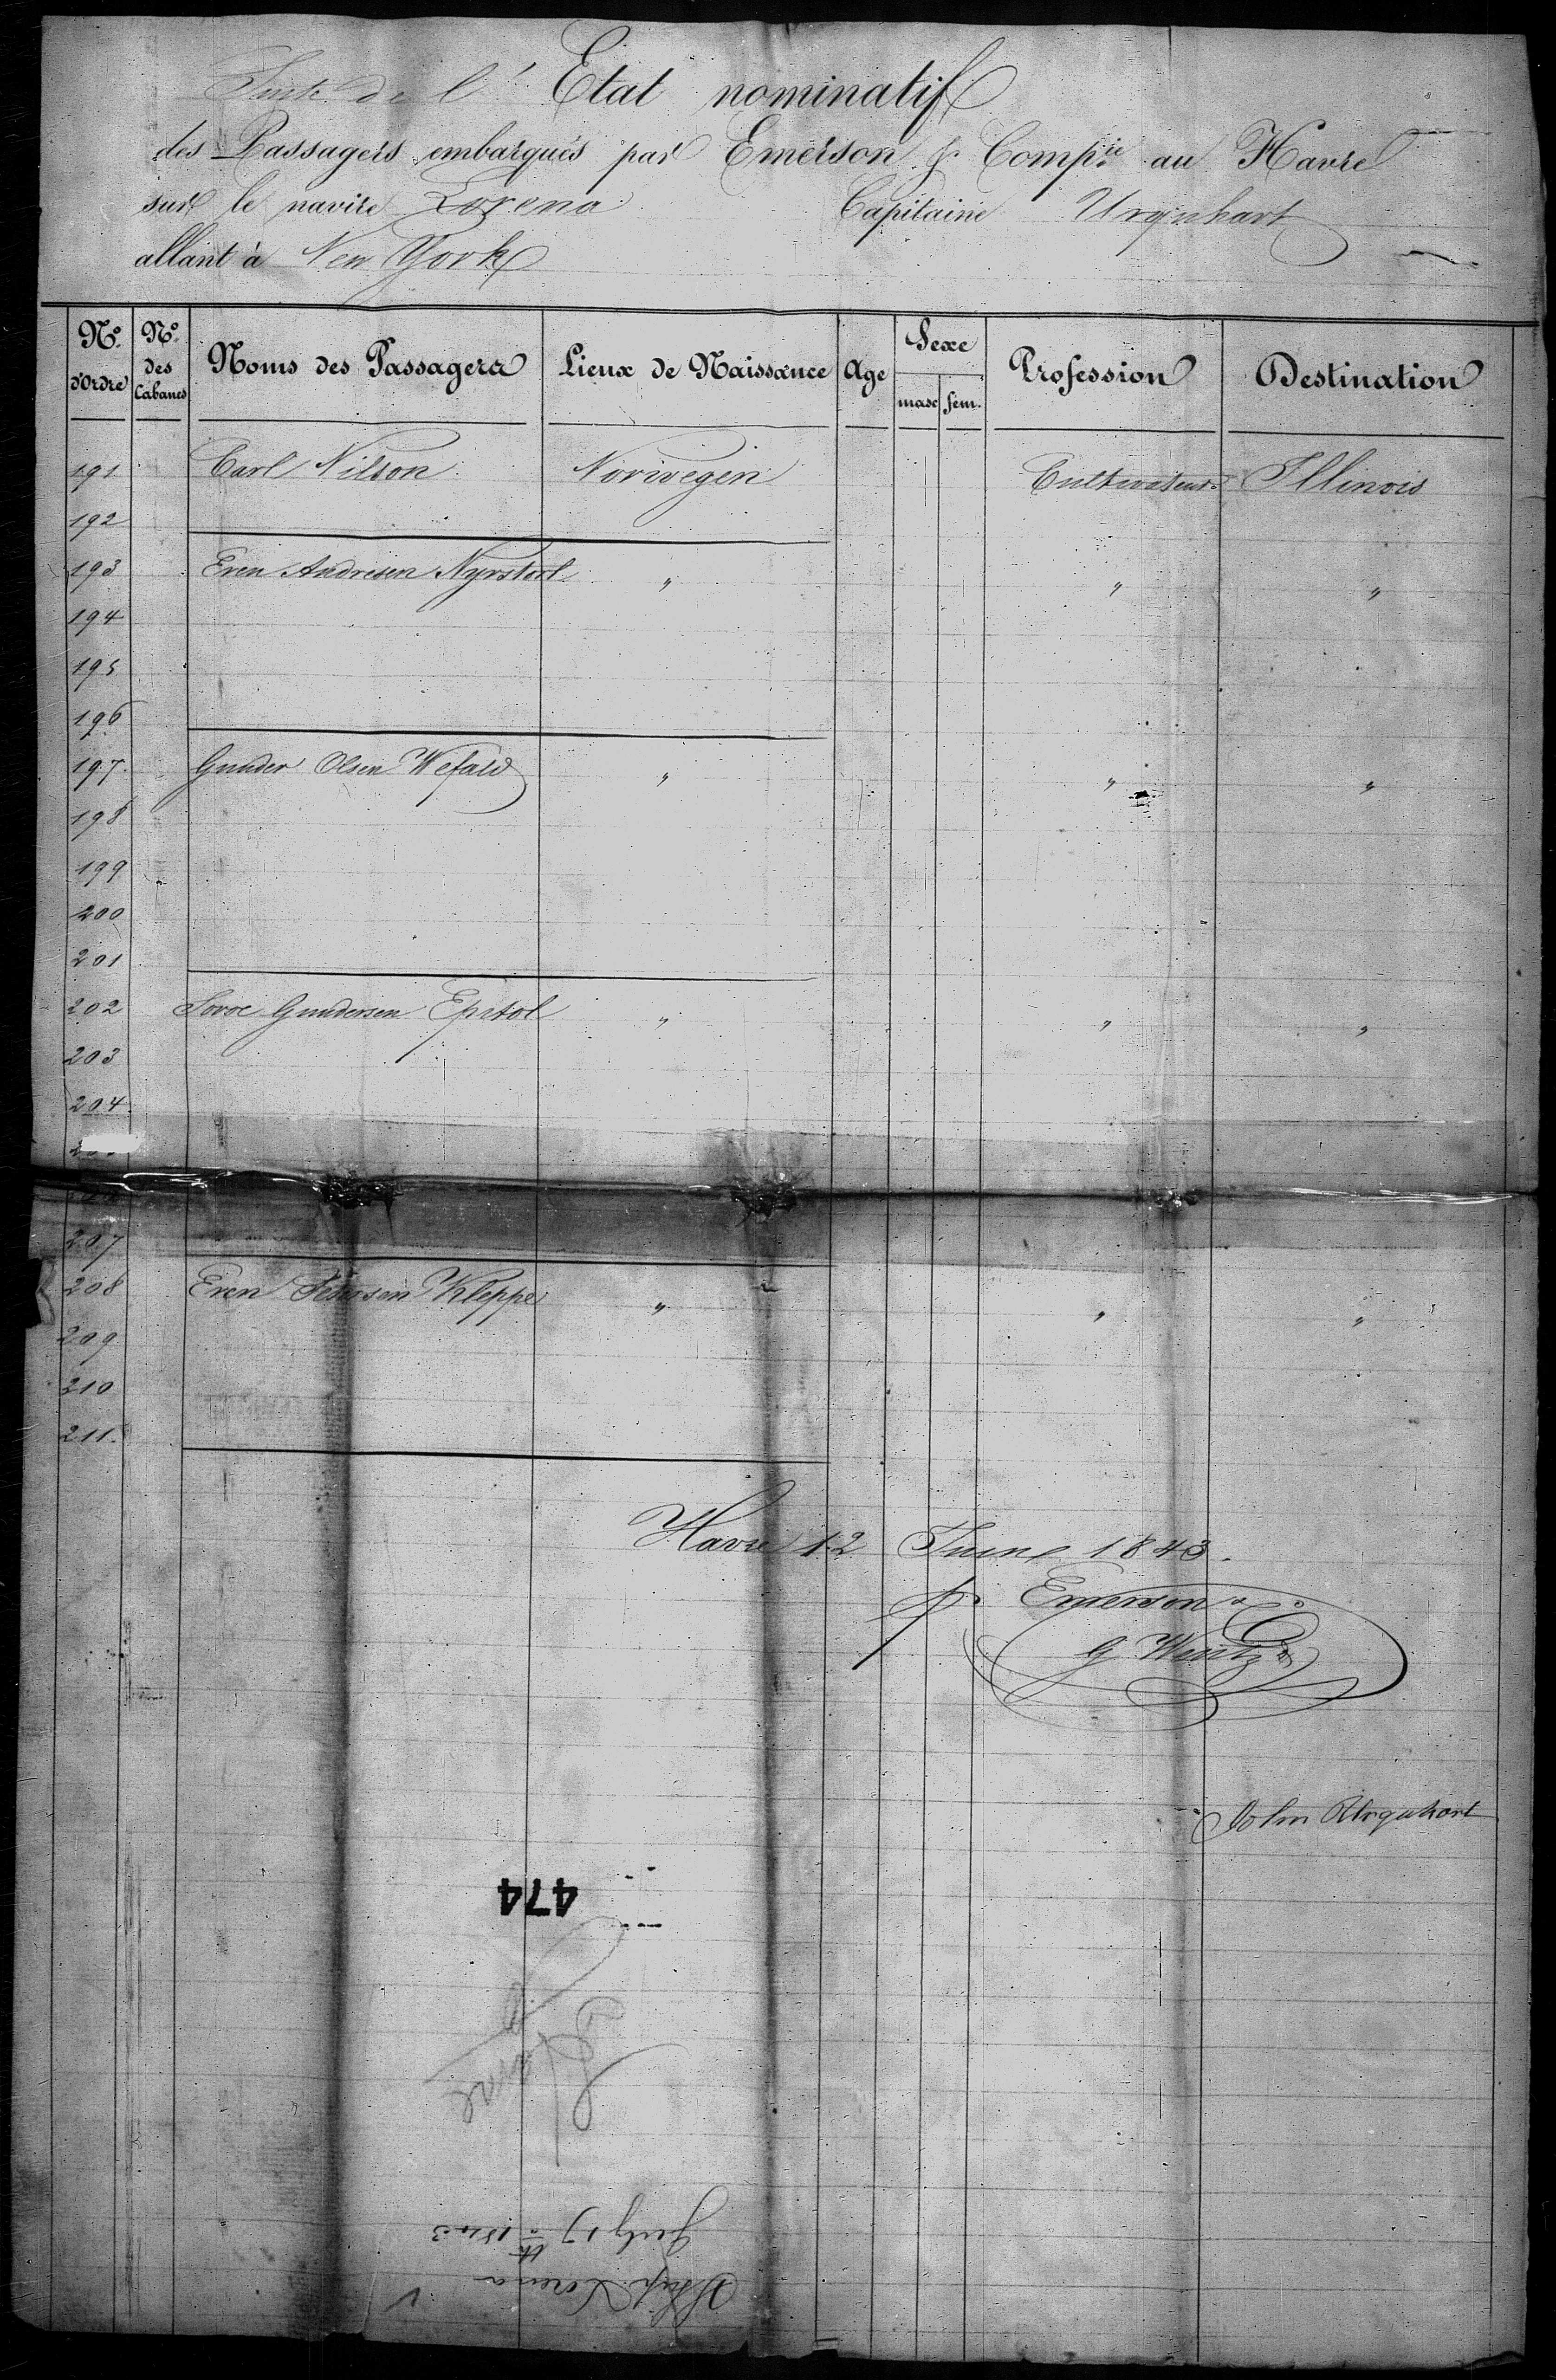 Suite de l' Etat nominatif
des Passagers embarqués par Emerson & Comp.ie au Havre
sur le navire Lorena Capitaine Urquhart
allant à New York
No. d'Ordre No. des Cabanes Noms des Passagers Lieux de Naissance Age Sexe masc fém. Profession Destination
191 Carl Nilson Norwegen Cultivateur Illinois
192
193 Even Andresen Nyrstol " " "
194
195
196
197 Gunder Olsen Wefald " " "
198
199
200
201
202 Gundersen Epstol " " "
203
204
207
208 Even Petersen Kleppe " " "
209
210
211.
Havre 12 June 1843.
p. Emerson & Co
G Wentz
John Urquhart
474
Ship Lorena
July 17th 1843